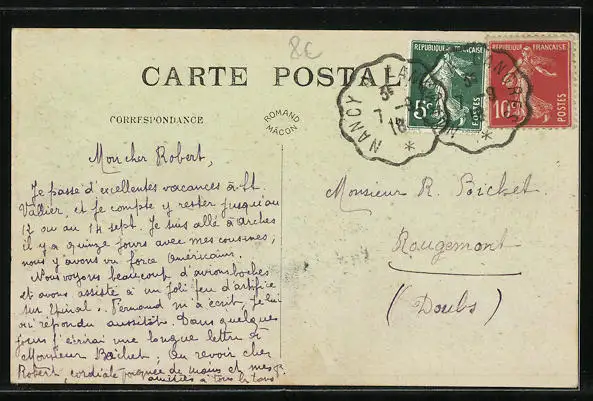 8€
CARTE POSTALE
CORRESPONDANCE
ROMAND
MÂCON
RÉPUBLIQUE FRANÇAISE
5c
POSTES
RÉPUBLIQUE FRANÇAISE
10c
POSTES
NANCY
7-9
18
Mon cher Robert,
Je passe d'excellentes vacances à St.
Vallier, et je compte y rester jusqu'au
12 ou au 14 sept. Je suis allé à Arches
il y a quinze jours avec mes cousines;
nous y avons vu force Américains.
Nous voyons beaucoup d'avions boches
et avons assisté à un joli feu d'artifice
sur Epinal. Fernand m'a écrit, je lui
ai répondu aussitôt. Dans quelques
jours j'écrirai une longue lettre à
Monsieur Boichet; Au revoir cher
Robert, cordiale poignée de mains et mes
amitiés à tous
Monsieur R. Boichet
Rougemont
(Doubs)